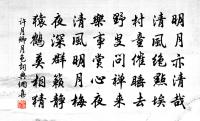 明月亦清哉
絕點埃
村童催睡去
野叟問禪來
樂事賞心夜
清風明月梅
夜深群籟靜
猿鶴莫相猜
許月卿月色詞典網集